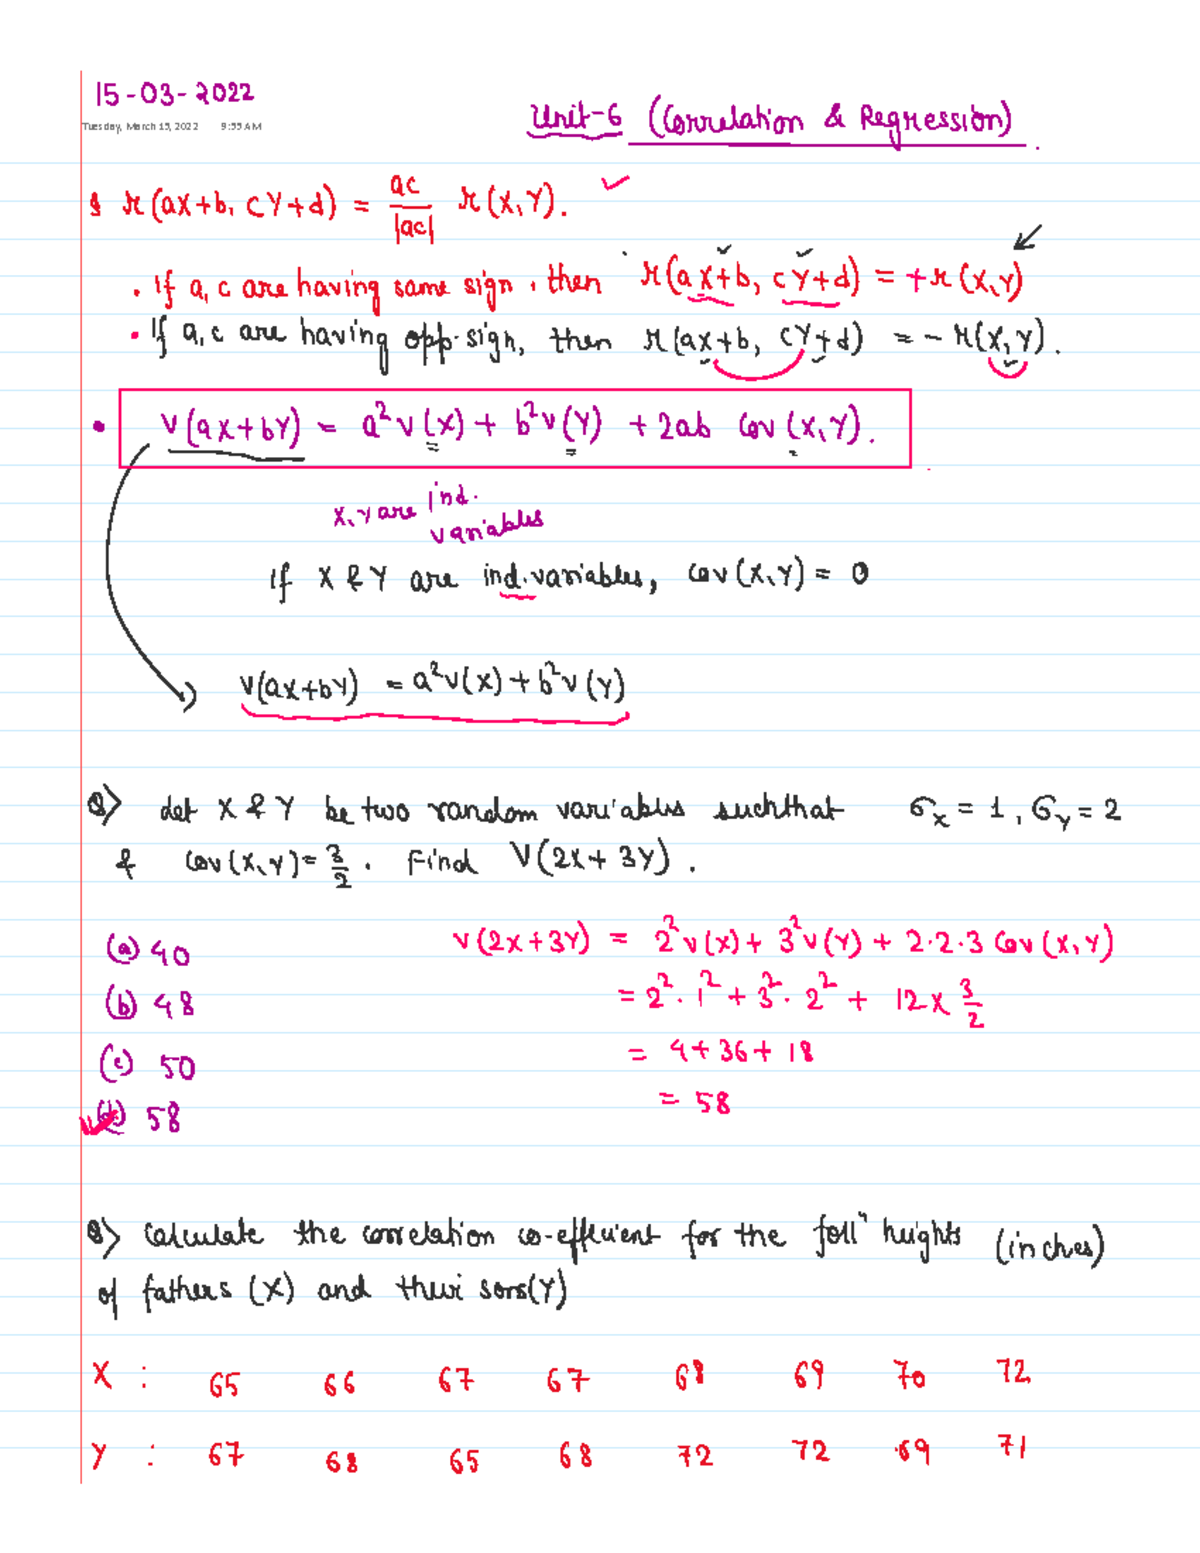 15-03-2022
Tuesday, March 15, 2022 9:55 AM
Unit-6 (Correlation & Regression)
r(aX+b, cY+d) = ac/|ac| r(X,Y). ✓
. If a,c are having same sign, then r(aX+b, cY+d) = +r(X,Y)
• If a,c are having opp. sign, then r(aX+b, cY+d) = - r(X,Y).
• V(aX+bY) = a²V(X) + b²V(Y) + 2ab Cov(X,Y).
X,Y are ind.
variables
If X & Y are ind. variables, Cov(X,Y) = 0
V(aX+bY) = a²V(X) + b²V(Y)
Q) Let X & Y be two random variables such that σx = 1, σy = 2
& Cov(X,Y) = 3/2. Find V(2X+3Y).
(a) 40
V(2X+3Y) = 2²V(X) + 3²V(Y) + 2·2·3 Cov(X,Y)
(b) 48
= 2²·1² + 3²·2² + 12 x 3/2
(c) 50
= 4+36+18
(d) 58
= 58
Q) Calculate the correlation co-efficient for the follⁿ heights (inches)
of fathers (X) and their sons(Y)
X : 65 66 67 67 68 69 70 72
Y : 67 68 65 68 72 72 69 71